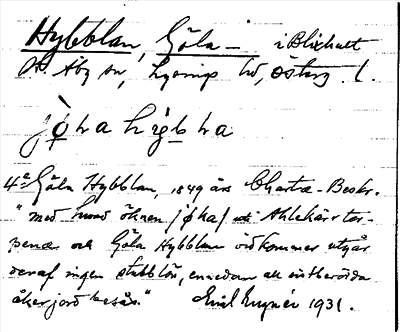 Hybblan, Göla – i Blixhult
St. Åby sn, Lysings hd, Österg. l.
4:e Göla Hybblan, 1849 års Charta-Beskr.
"med hvad öknen / och Ahlekärrstor-
penæ och Göla Hybblan vidkommer utgår
deraf ingen stubblön, emedan all
åkerjord besås." Emil 1931.